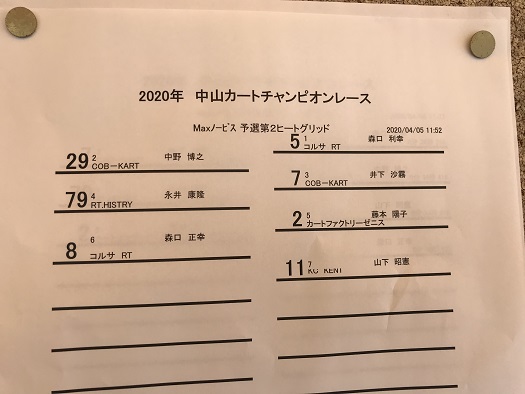 2020年 中山カートチャンピオンレース
Maxノービス 予選第2ヒートグリッド
2020/04/05 11:52
5 1 森口 利幸
コルサ RT
29 2 中野 博之
COB-KART
7 3 井下 沙霧
COB-KART
79 4 永井 康隆
RT.HISTRY
2 5 藤本 陽子
カートファクトリーゼニス
8 6 森口 正幸
コルサ RT
11 7 山下 昭憲
KC KENT